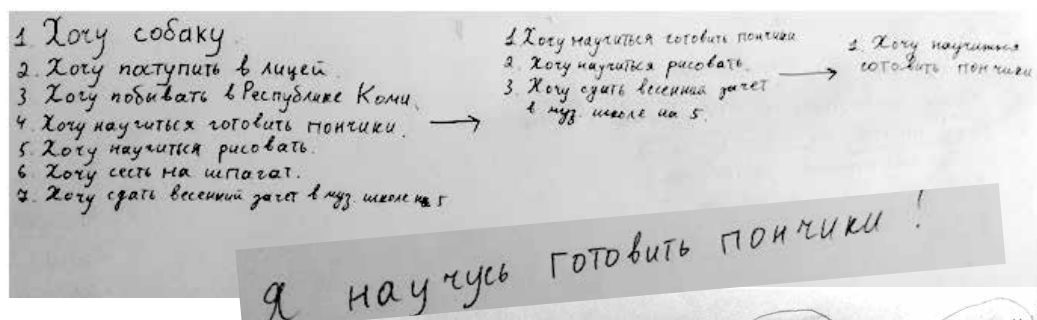 1. Хочу собаку.
2. Хочу поступить в лицей.
3 Хочу побывать в Республике Коми.
4. Хочу научиться готовить пончики.
5. Хочу научиться рисовать.
6 Хочу сесть на шпагат.
7. Хочу сдать весенний зачет в муз. школе на 5
1. Хочу научиться готовить пончики
2. Хочу научиться рисовать.
3. Хочу сдать весенний зачет
в муз. школе на 5.
1. Хочу научиться
готовить пончики
Я научусь готовить пончики!